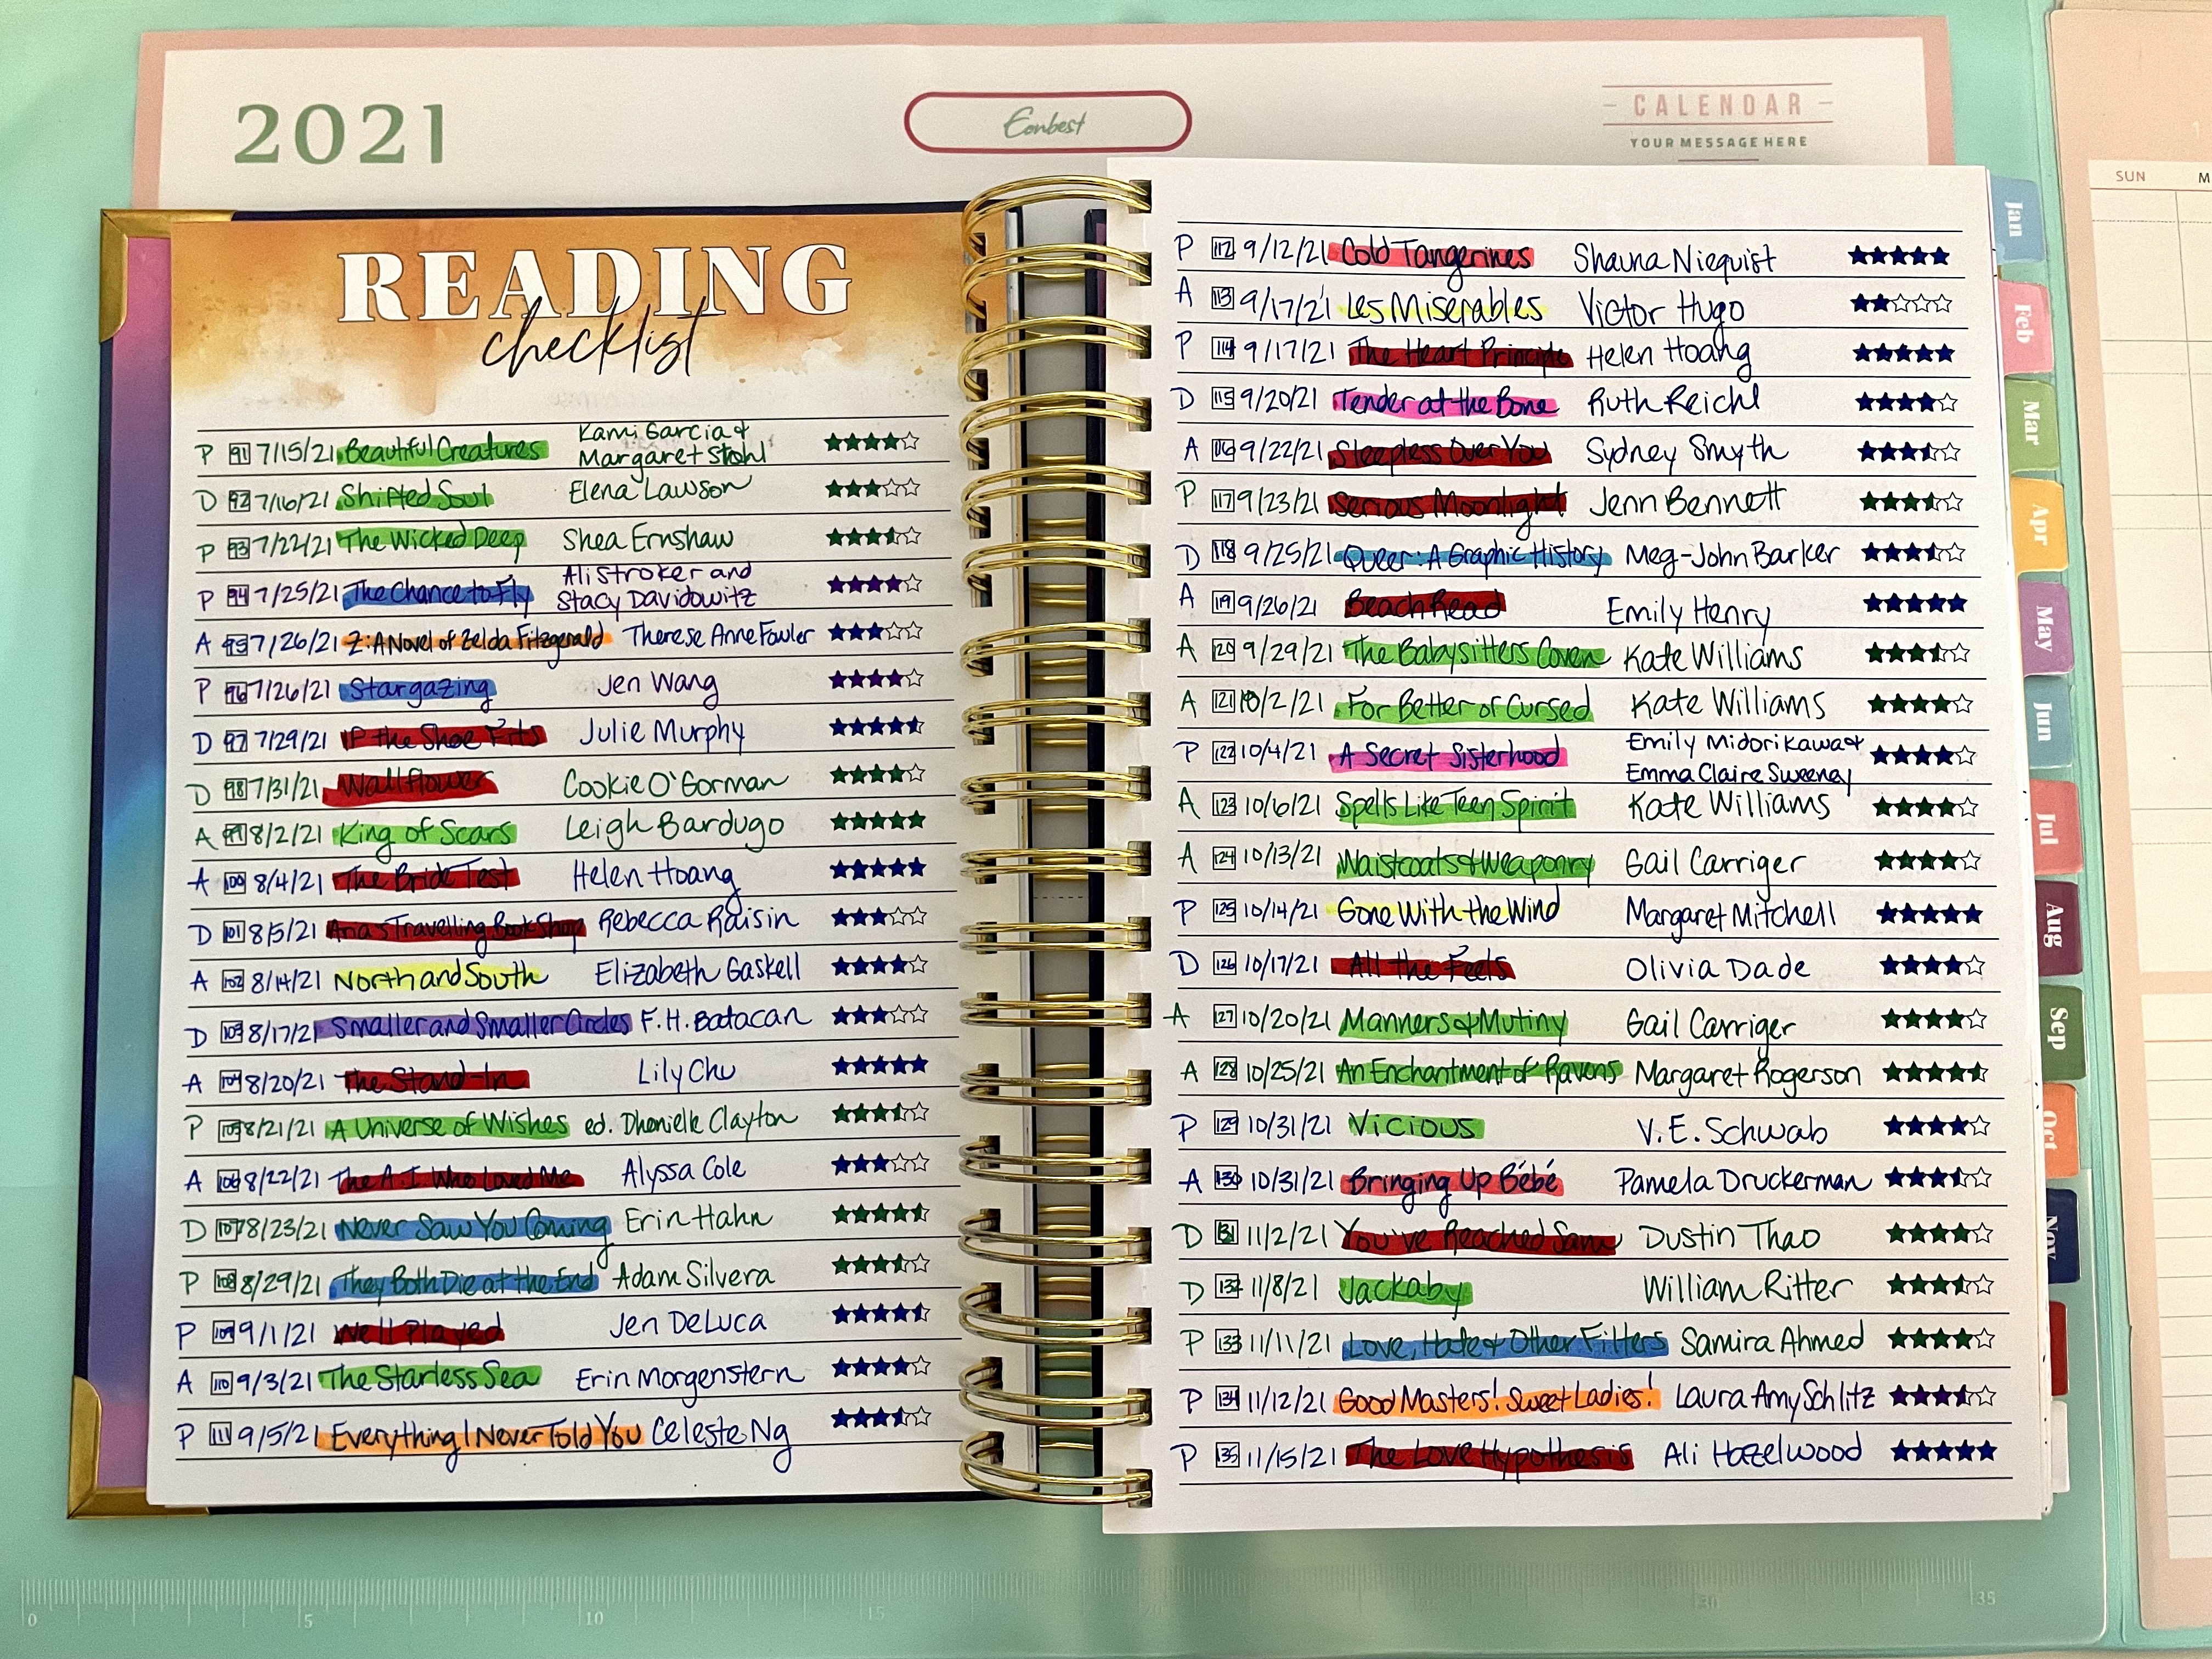 2021
Eonbest
CALENDAR
YOUR MESSAGE HERE
SUN M
READING
checklist
P 91 7/15/21 Beautiful Creatures Kami Garcia & Margaret Stohl ★★★★☆
D 92 7/16/21 Shifted Soul Elena Lawson ★★★☆☆
P 93 7/22/21 The Wicked Deep Shea Ernshaw
P 94 7/25/21 The Chance to Fly Ali Stroker and Stacy Davidowitz ★★★★☆
A 95 7/26/21 Z: A Novel of Zelda Fitzgerald Therese Anne Fowler ★★★☆☆
P 96 7/26/21 Stargazing Jen Wang ★★★★☆
D 97 7/29/21 If the Shoe Fits Julie Murphy
D 98 7/31/21 Wallflower Cookie O'Gorman ★★★★☆
A 99 8/2/21 King of Scars Leigh Bardugo ★★★★★
A 100 8/4/21 The Bride Test Helen Hoang ★★★★★
D 101 8/5/21 Aria's Travelling Book Shop Rebecca Raisin ★★★☆☆
A 102 8/14/21 North and South Elizabeth Gaskell ★★★★☆
D 103 8/17/21 Smaller and Smaller Circles F.H. Batacan ★★★☆☆
A 104 8/20/21 The Stand-In Lily Chu ★★★★★
P 105 8/21/21 A Universe of Wishes ed. Dhonielle Clayton
A 106 8/22/21 The A.I. Who Loved Me Alyssa Cole ★★★☆☆
D 107 8/23/21 Never Saw You Coming Erin Hahn
P 108 8/29/21 They Both Die at the End Adam Silvera
P 109 9/1/21 Well Played Jen DeLuca
A 110 9/3/21 The Starless Sea Erin Morgenstern ★★★★☆
P 111 9/5/21 Everything I Never Told You Celeste Ng
P 112 9/12/21 Cold Tangerines Shauna Niequist ★★★★★
A 113 9/17/21 Les Miserables Victor Hugo ★★☆☆☆
P 114 9/17/21 The Heart Principle Helen Hoang ★★★★★
D 115 9/20/21 Tender at the Bone Ruth Reichl ★★★★☆
A 116 9/22/21 Sleepless Over You Sydney Smyth
P 117 9/23/21 Serious Moonlight Jenn Bennett
D 118 9/25/21 Queer: A Graphic History Meg-John Barker
A 119 9/26/21 Beach Read Emily Henry ★★★★★
A 120 9/29/21 The Babysitters Coven Kate Williams
A 121 10/2/21 For Better or Cursed Kate Williams ★★★★☆
P 122 10/4/21 A Secret Sisterhood Emily Midorikawa & Emma Claire Sweeney ★★★★☆
A 123 10/6/21 Spells Like Teen Spirit Kate Williams ★★★★☆
A 124 10/13/21 Waistcoats & Weaponry Gail Carriger ★★★★☆
P 125 10/14/21 Gone With the Wind Margaret Mitchell ★★★★★
D 126 10/17/21 All the Feels Olivia Dade ★★★★☆
A 127 10/20/21 Manners & Mutiny Gail Carriger ★★★★☆
A 128 10/25/21 An Enchantment of Ravens Margaret Rogerson
P 129 10/31/21 Vicious V.E. Schwab ★★★★☆
A 130 10/31/21 Bringing Up Bébé Pamela Druckerman
D 131 11/2/21 You've Reached Sam Dustin Thao ★★★★☆
D 132 11/8/21 Jackaby William Ritter
P 133 11/11/21 Love, Hate & Other Filters Samira Ahmed ★★★★☆
P 134 11/12/21 Good Masters! Sweet Ladies! Laura Amy Schlitz
P 135 11/15/21 The Love Hypothesis Ali Hazelwood ★★★★★
Jan
Feb
Mar
Apr
May
Jun
Jul
Aug
Sep
Oct
Nov
0 5 10 15 30 35